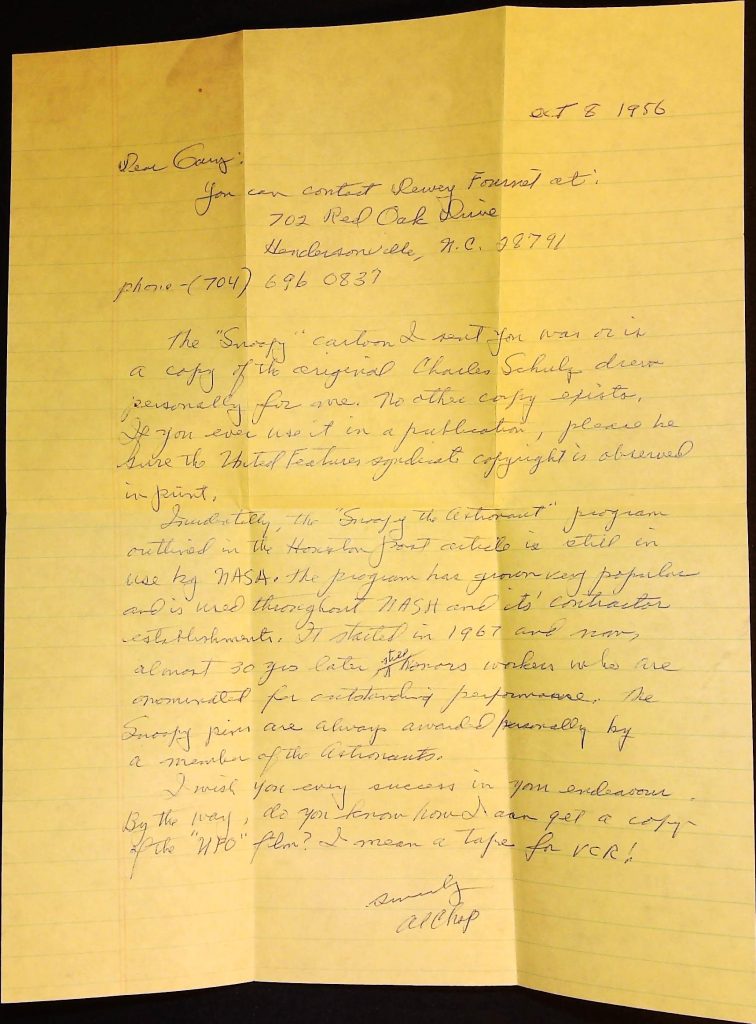 Oct 8 1956
Dear Gary:
You can contact Dewey Fournet at:
702 Red Oak Drive
Hendersonville, N.C. 28791
phone-(704) 696 0837
The "Snoopy" cartoon I sent you was or is
a copy of the original Charles Schulz drew
personally for me. No other copy exists.
If you ever use it in a publication, please be
sure the United Features syndicate copyright is observed
in print.
Incidentally, the "Snoopy the Astronaut" program
outlined in the Houston Post article is still in
use by NASA. The program has grown very popular
and is used throughout NASA and its' contractor
establishments. It started in 1967 and now,
almost 30 yrs later still honors workers who are
nominated for outstanding performance. The
Snoopy pins are always awarded personally by
a member of the Astronauts.
I wish you every success in your endeavour.
By the way, do you know how I can get a copy
of the "UFO" film? I mean a tape for VCR!
Sincerely
Al Chop